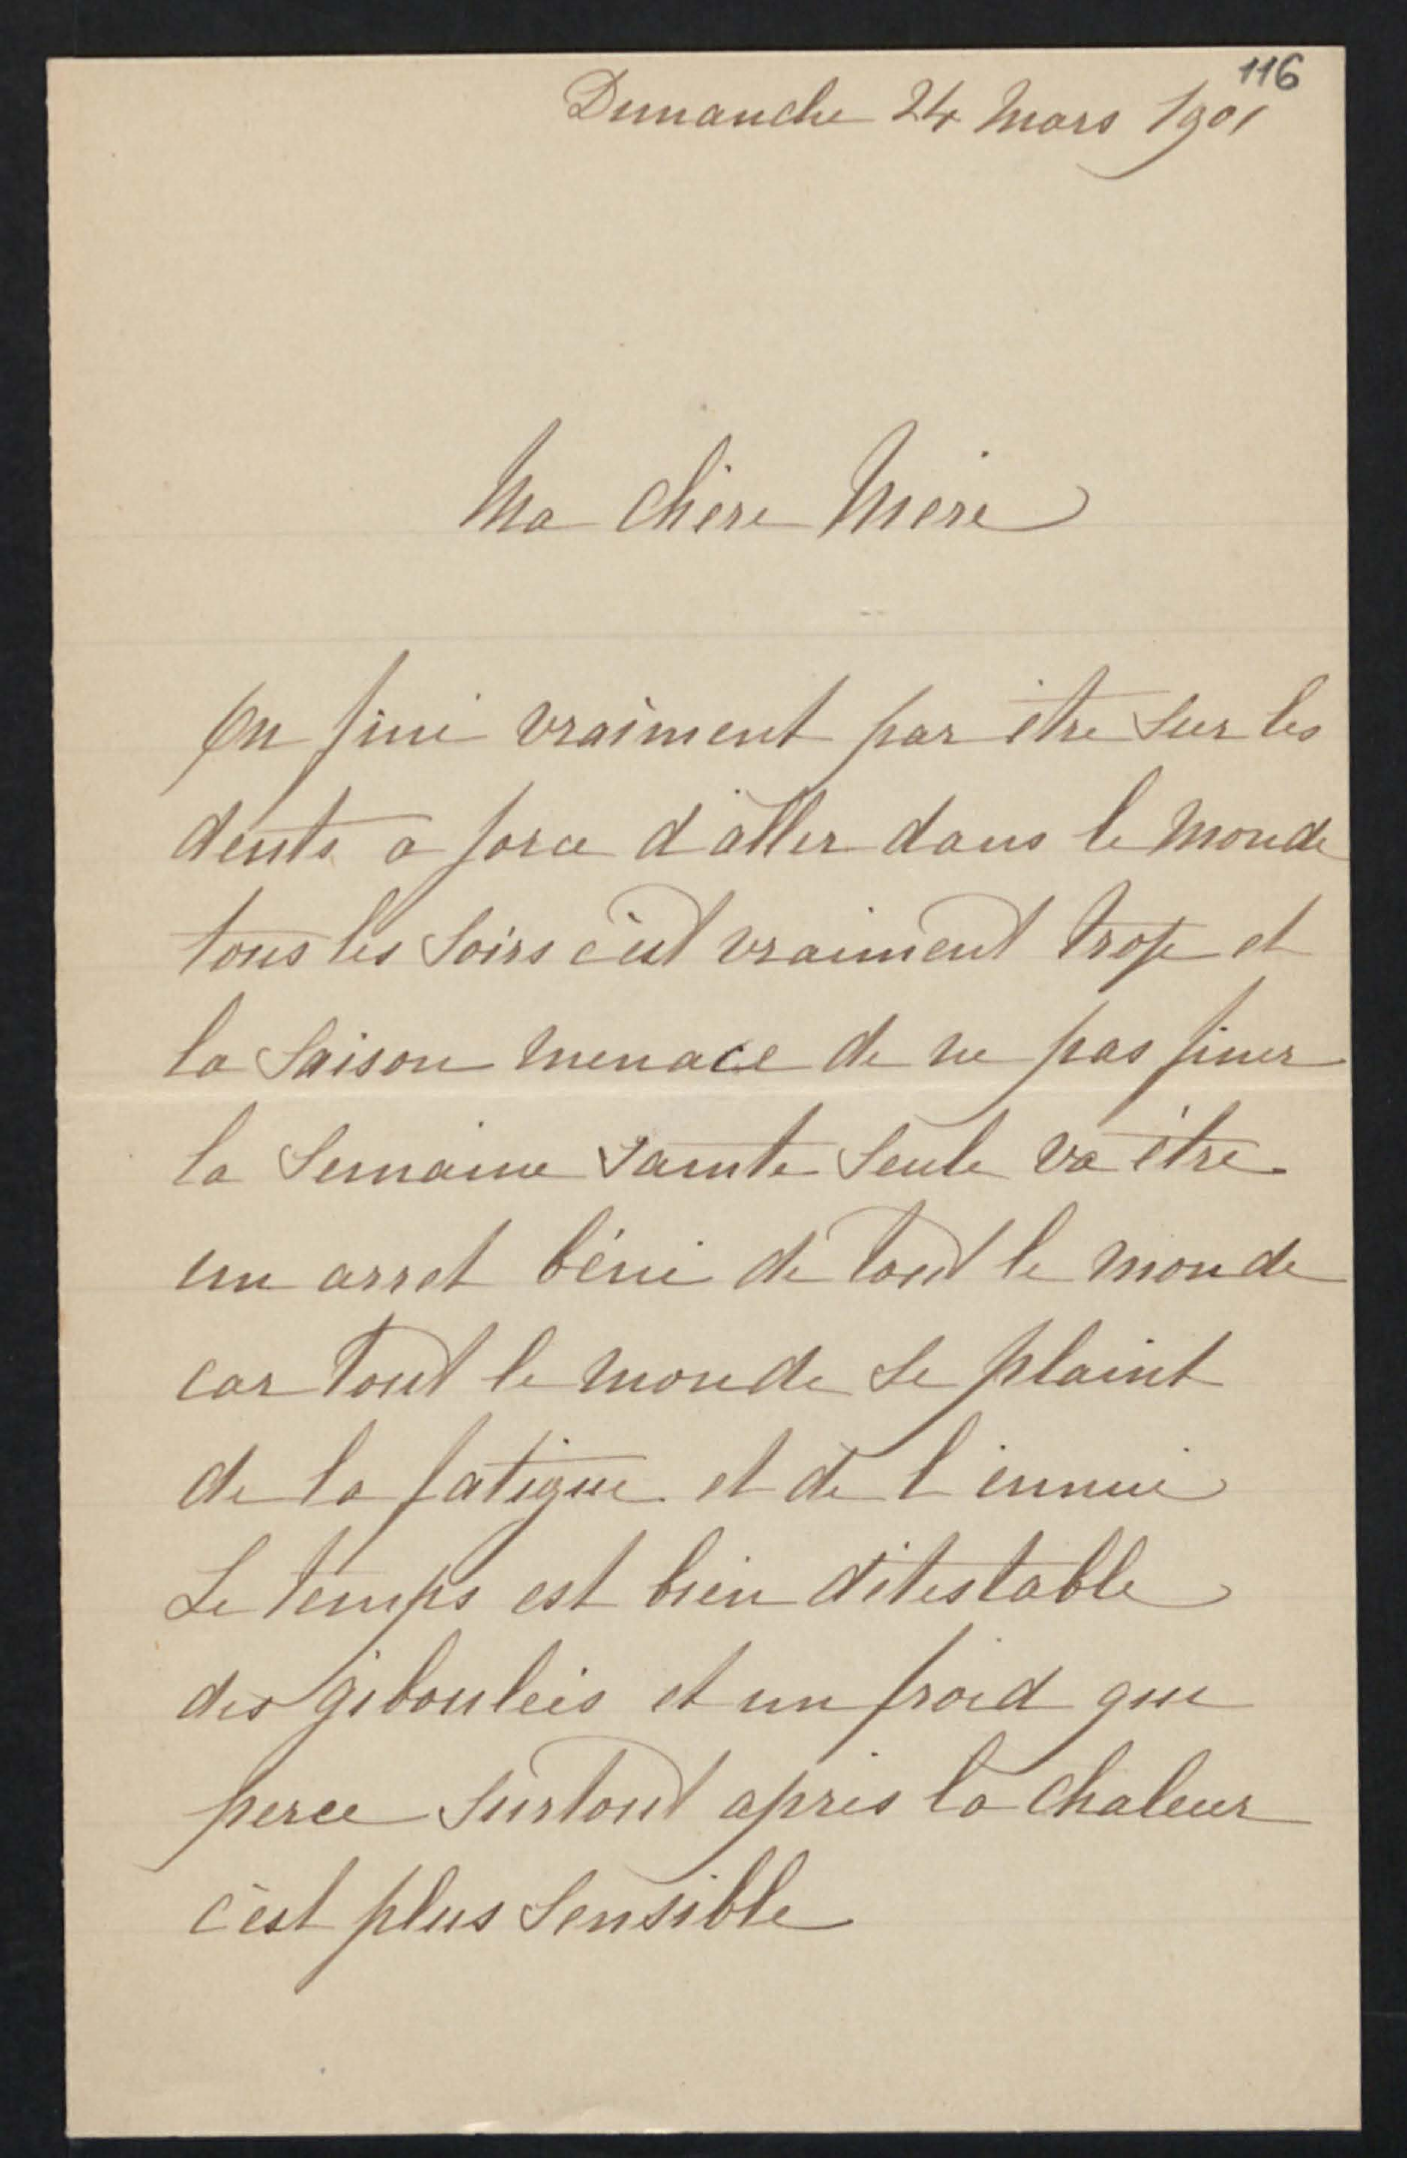 116
Dimanche 24 Mars 1901
Ma chère Mère
On fini vraiment par être sur les
dents a force d'aller dans le monde
tous les soirs c'est vraiment trop et
la saison menace de ne pas finir
la Semaine Sainte seule va être
un arret béni de tout le monde
car tout le monde se plaint
de la fatigue et de l'ennui
Le temps est bien détestable
des giboulées et un froid qui
perce surtout après la chaleur
c'est plus sensible